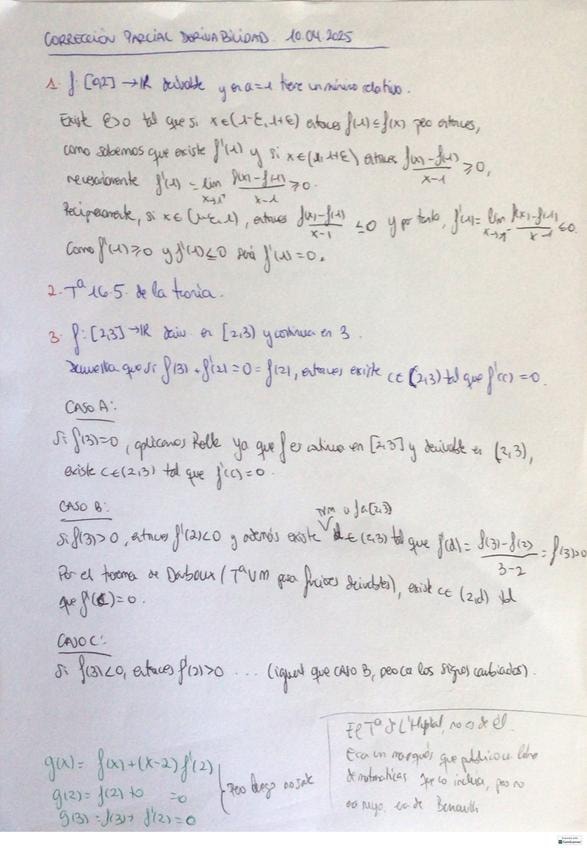 CORRECCIÓN PARCIAL DERIVABILIDAD. 10.04.2025
1. f: [0,2] → ℝ derivable y en a=1 tiene un mínimo relativo.
Existe ε>0 tal que si x∈(1-ε, 1+ε) entonces f(1)≤f(x) pero entonces,
como sabemos que existe f'(1) y si x∈(1,1+ε) entonces f(x)-f(1)/x-1 ≥0,
necesariamente f'(1) = lim x→1⁺ f(x)-f(1)/x-1 ≥0.
Recíprocamente, si x∈(1-ε,1), entonces f(x)-f(1)/x-1 ≤0 y por tanto, f'(1)= lim x→1⁻ f(x)-f(1)/x-1 ≤0.
Como f'(1)≥0 y f'(1)≤0 será f'(1)=0.
2. Tª 16.5. de la teoría.
3. f: [2,3] → ℝ deriv. en [2,3) y continua en 3.
Demuestra que si f(3) + f'(2)=0=f(2), entonces existe c∈(2,3) tal que f'(c)=0.
CASO A:
Si f(3)=0, aplicamos Rolle ya que f es continua en [2,3] y derivable en (2,3),
existe c∈(2,3) tal que f'(c)=0.
CASO B:
TVM a f a [2,3]
Si f(3)>0, entonces f'(2)<0 y además existe d∈(2,3) tal que f'(d) = f(3)-f(2)/3-2 = f(3)>0
Por el teorema de Darboux (Tª VM para funciones derivables), existe c∈(2,d) tal
que f'(c)=0.
CASO C:
Si f(3)<0, entonces f'(2)>0 ... (igual que CASO B, pero con los signos cambiados).
g(x) = f(x)+(x-2)f'(2)
g(2)=f(2)+0 =0
g(3)=f(3)+f'(2)=0
Pero luego no sale
El Tª de L'Hôpital, no es de él.
Era un marqués que publicó un libro
de matemáticas que lo incluía, pero no
era suyo, era de Bernoulli